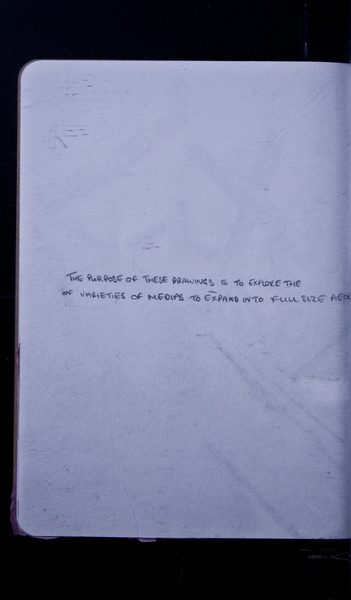 THE PURPOSE OF THESE DRAWINGS IS TO EXPLORE THE
OF VARIETIES OF MEDIAS TO EXPAND INTO FULL SIZE PIECE